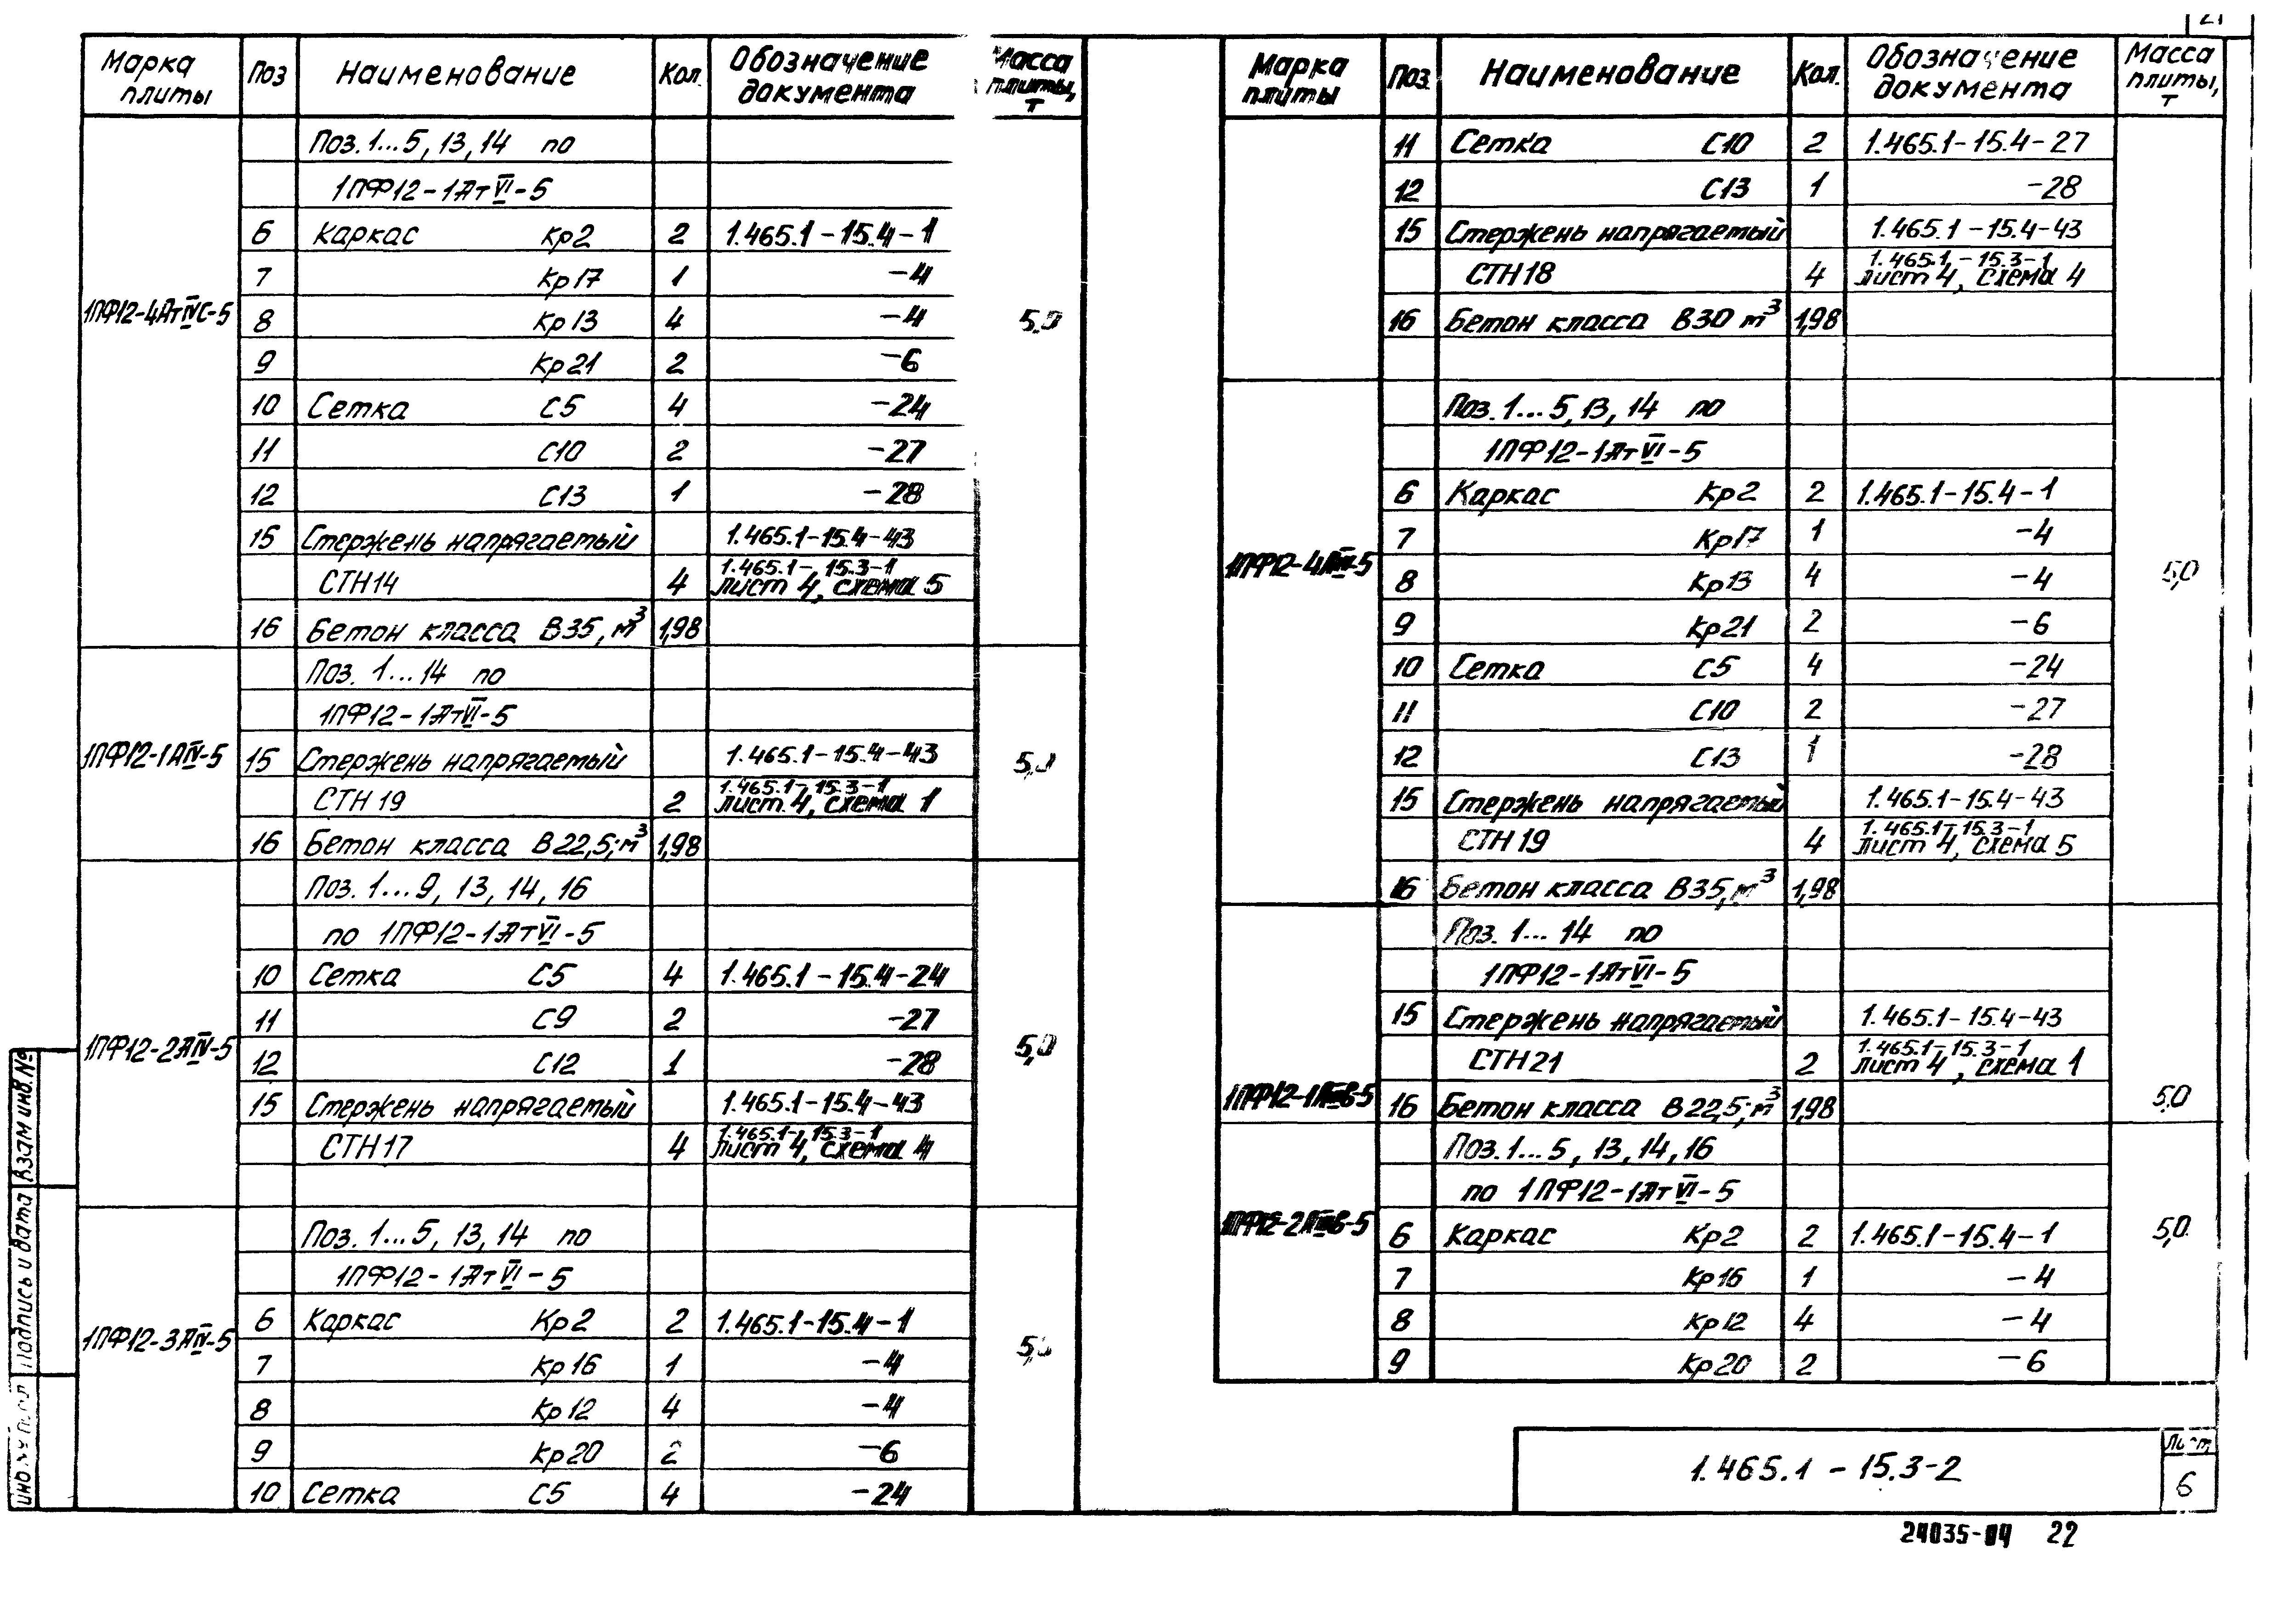 21
Марка плиты | Поз | Наименование | Кол. | Обозначение документа | Масса плиты, т
Поз. 1...5, 13, 14 по
1ПФ12-1АтVI-5
6 Каркас Кр2 2 1.465.1-15.4-1
7 Кр17 1 -4
1ПФ12-4АтIVС-5 8 Кр13 4 -4 5,0
9 Кр21 2 -6
10 Сетка С5 4 -24
11 С10 2 -27
12 С13 1 -28
15 Стержень напрягаемый 1.465.1-15.4-43
СТН14 4 1.465.1-15.3-1 лист 4, схема 5
16 Бетон класса В35, м³ 1,98
Поз. 1...14 по
1ПФ12-1АтVI-5
1ПФ12-1АIV-5 15 Стержень напрягаемый 1.465.1-15.4-43 5,0
СТН19 2 1.465.1-15.3-1 лист 4, схема 1
16 Бетон класса В22,5; м³ 1,98
Поз. 1...9, 13, 14, 16
по 1ПФ12-1АтVI-5
10 Сетка С5 4 1.465.1-15.4-24
11 С9 2 -27
1ПФ12-2АIV-5 12 С12 1 -28 5,0
15 Стержень напрягаемый 1.465.1-15.4-43
СТН17 4 1.465.1-15.3-1 лист 4, схема 4
Поз. 1...5, 13, 14 по
1ПФ12-1АтVI-5
6 Каркас Кр2 2 1.465.1-15.4-1
1ПФ12-3АIV-5 7 Кр16 1 -4 5,0
8 Кр12 4 -4
9 Кр20 2 -6
10 Сетка С5 4 -24
Марка плиты | Поз. | Наименование | Кол. | Обозначение документа | Масса плиты, т
11 Сетка С10 2 1.465.1-15.4-27
12 С13 1 -28
15 Стержень напрягаемый 1.465.1-15.4-43
СТН18 4 1.465.1-15.3-1 лист 4, схема 4
16 Бетон класса В30 м³ 1,98
Поз. 1...5, 13, 14 по
1ПФ12-1АтVI-5
6 Каркас Кр2 2 1.465.1-15.4-1
7 Кр17 1 -4
8 Кр13 4 -4 5,0
9 Кр21 2 -6
10 Сетка С5 4 -24
11 С10 2 -27
12 С13 1 -28
15 Стержень напрягаемый 1.465.1-15.4-43
СТН19 4 1.465.1-15.3-1 лист 4, схема 5
16 Бетон класса В35, м³ 1,98
Поз. 1...14 по
1ПФ12-1АтVI-5
15 Стержень напрягаемый 1.465.1-15.4-43
СТН21 2 1.465.1-15.3-1 лист 4, схема 1
16 Бетон класса В22,5; м³ 1,98 5,0
Поз. 1...5, 13, 14, 16
по 1ПФ12-1АтVI-5
6 Каркас Кр2 2 1.465.1-15.4-1 5,0
7 Кр16 1 -4
8 Кр12 4 -4
9 Кр20 2 -6
Взам инв. №
Подпись и дата
1.465.1-15.3-2
Лист
6
24035-04 22